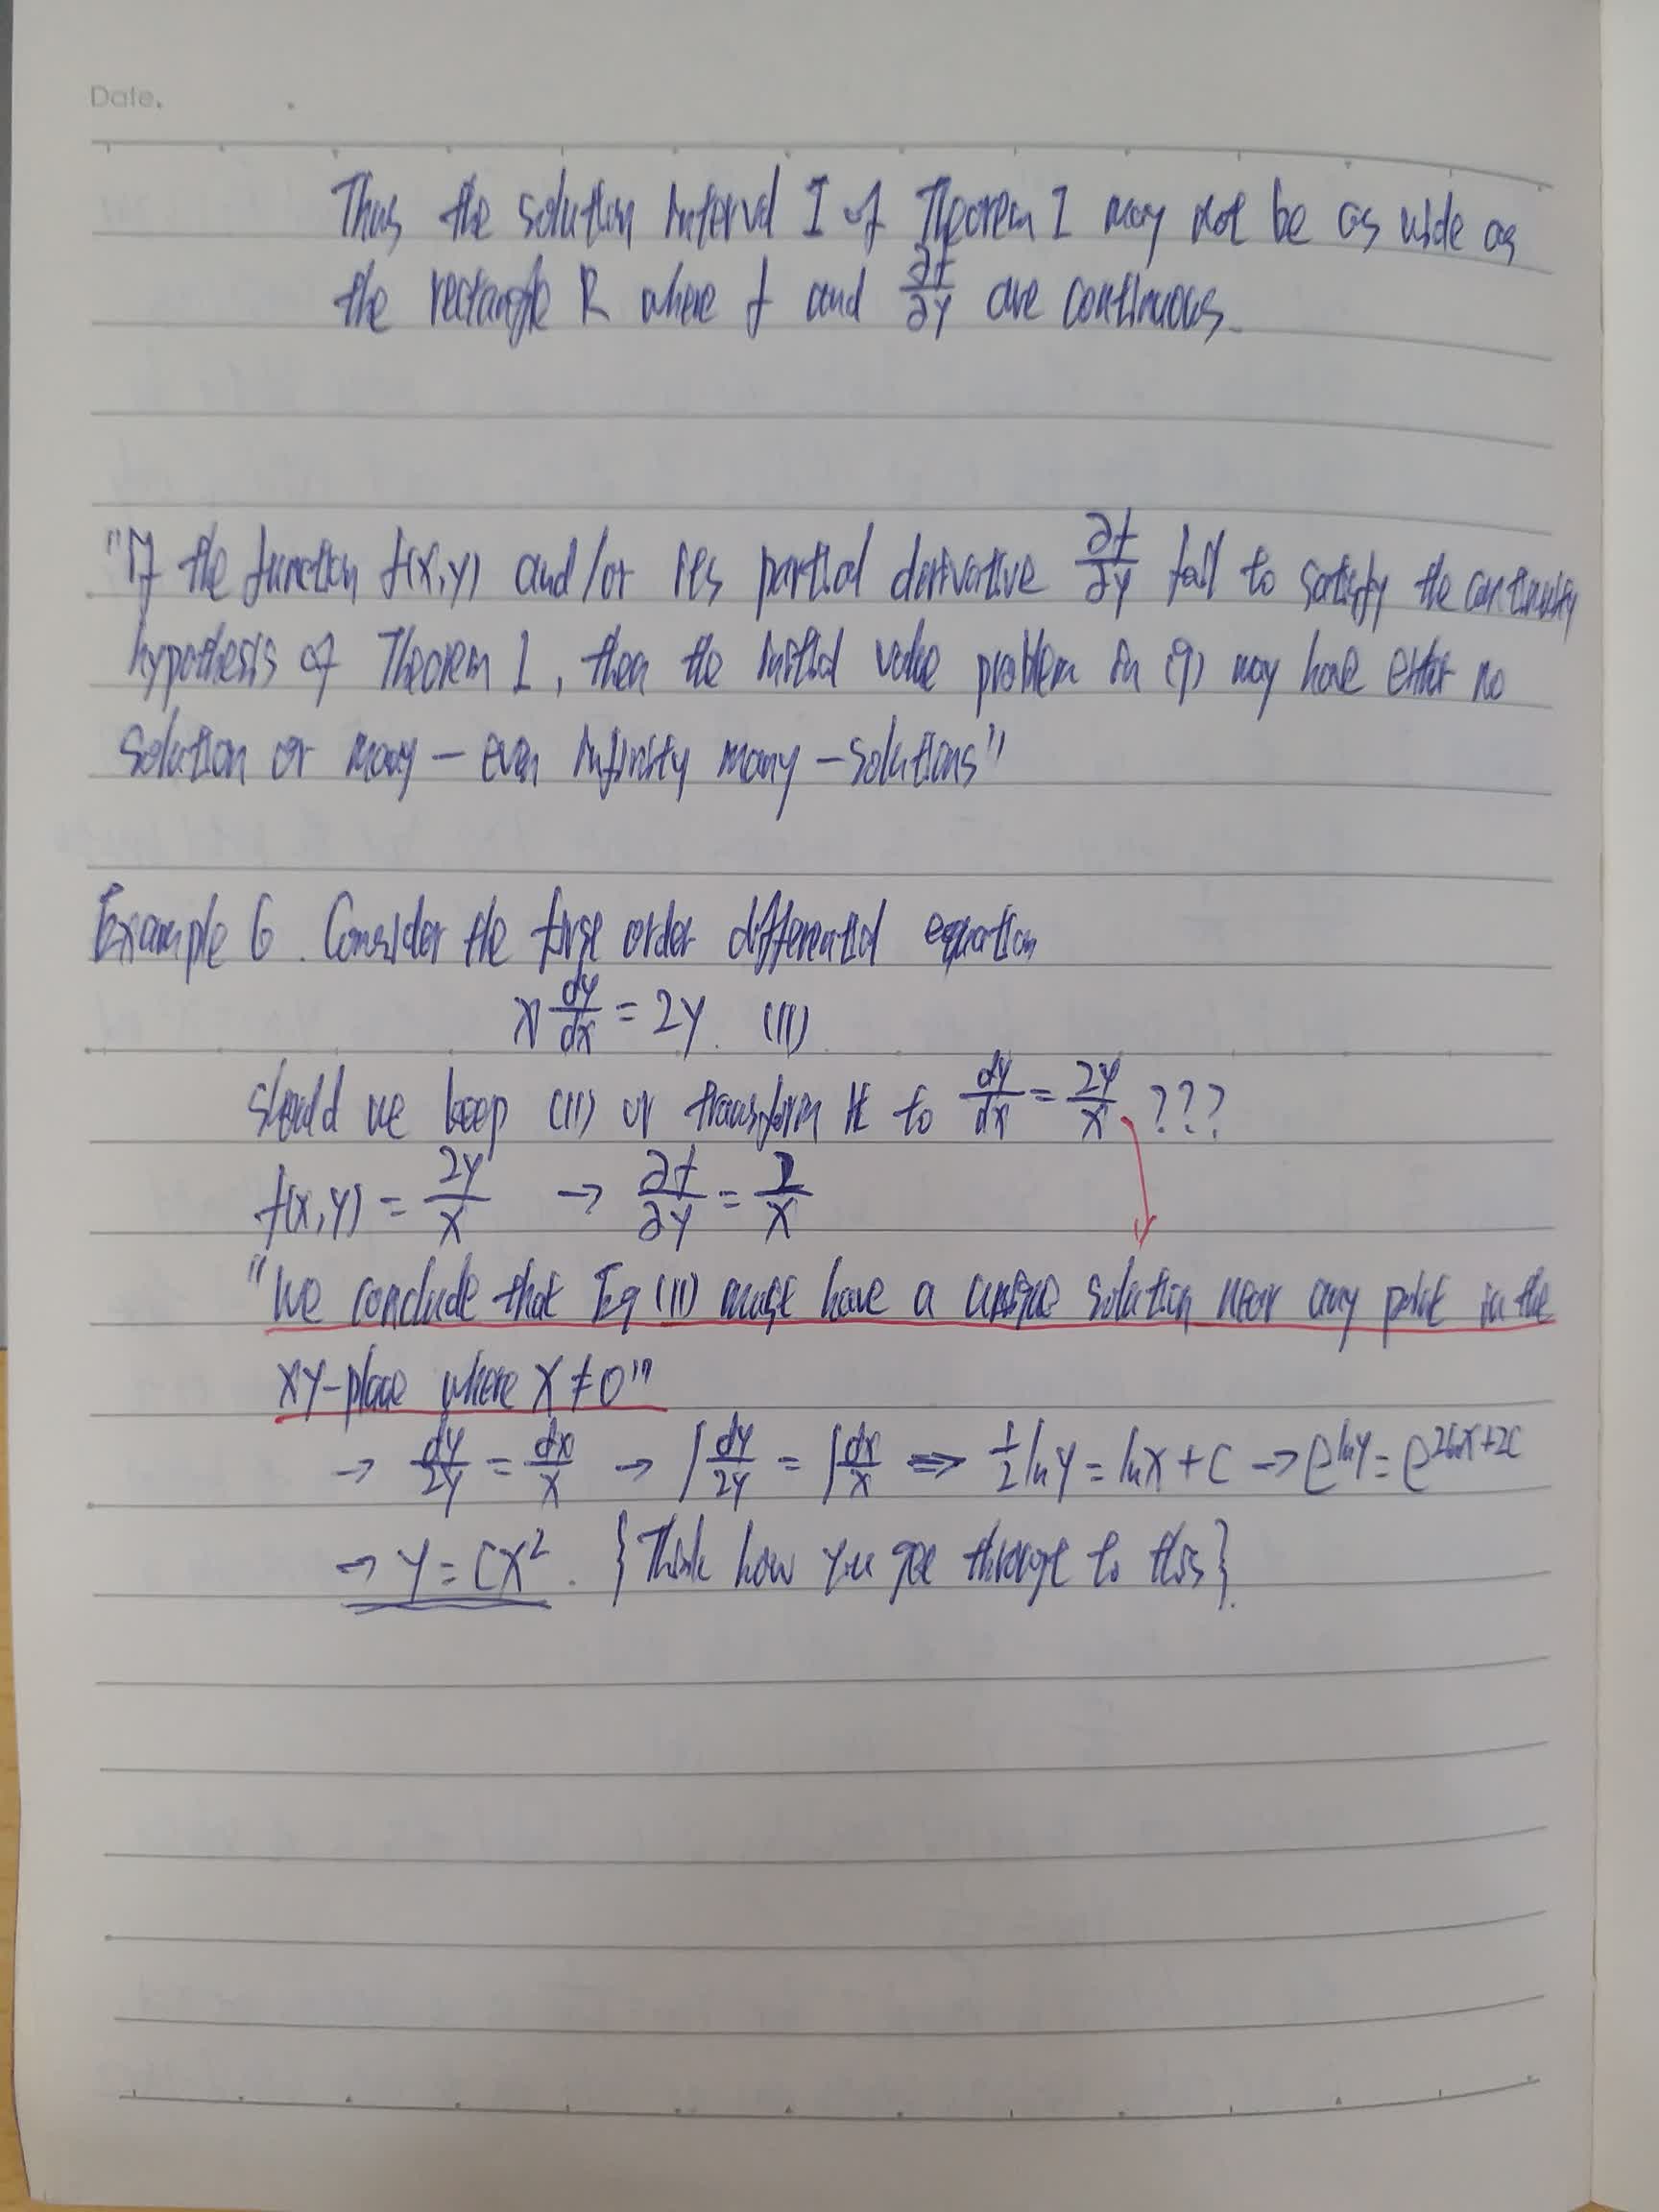 Date.
Thus the solution interval I of Theorem 1 may not be as wide as
the rectangle R where f and ∂f/∂y are continuous.
"If the function f(x,y) and/or its partial derivative ∂f/∂y fail to satisfy the continuity
hypothesis of Theorem 1, then the initial value problem in (9) may have either no
solution or many – even infinity many – solutions"
Example 6. Consider the first order differential equation
x dy/dx = 2y. (11)
Should we keep (11) or transform it to dy/dx = 2y/x ???
f(x,y) = 2y/x → ∂f/∂y = 2/x
"We conclude that Eq (11) must have a unique solution near any point in the
xy-plane where x ≠ 0"
→ dy/2y = dx/x → ∫ dy/2y = ∫ dx/x ⇒ 1/2 ln y = ln x + C → e^{ln y} = e^{2ln x + 2C}
→ y = Cx². {Think how you get through to this}.